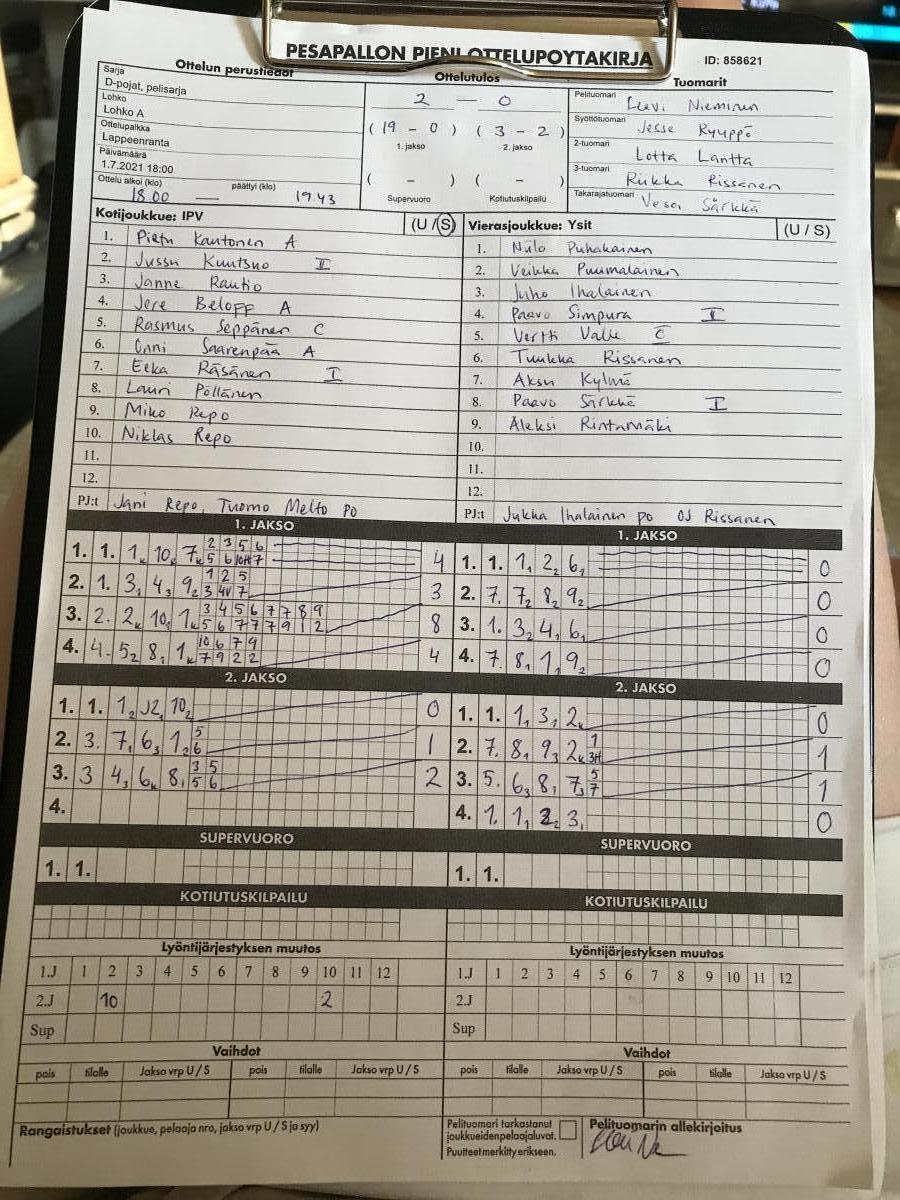 PESAPALLON PIENI OTTELUPOYTAKIRJA
ID: 858621
Ottelun perustiedot
Sarja
D-pojat, pelisarja
Lohko
Lohko A
Ottelupaikka
Lappeenranta
Päivämäärä
1.7.2021 18:00
Ottelu alkoi (klo) päättyi (klo)
18.00 — 19.43
Ottelutulos
2 — 0
( 19 - 0 ) ( 3 - 2 )
1. jakso 2. jakso
( - ) ( - )
Supervuoro Kotiutuskilpailu
Tuomarit
Pelituomari Leevi Nieminen
Syöttötuomari Jesse Ryyppö
2-tuomari Lotta Lantta
3-tuomari Riikka Rissanen
Takarajatuomari Vesa Särkkä
Kotijoukkue: IPV (U / S)
1. Pietu Kautonen A
2. Jussu Kuutsuo II
3. Janne Rautio
4. Jere Beloff A
5. Rasmus Seppänen C
6. Onni Saarenpää A
7. Eeka Räsänen I
8. Lauri Pöllänen
9. Miko Repo
10. Niklas Repo
11.
12.
PJ:t Jani Repo, Tuomo Melto PO
Vierasjoukkue: Ysit (U / S)
1. Niilo Puhakainen
2. Veikka Puumalainen
3. Juho Ihalainen
4. Paavo Simpura I
5. Vertti Valle C
6. Tuukka Rissanen
7. Aksu Kylmä
8. Paavo Särkkä I
9. Aleksi Rintamäki
10.
11.
12.
PJ:t Jukka Ihalainen PO OJ Rissanen
1. JAKSO
1. 1. 1k 10k 7k 2 3 5 6 4
5 6 10H 7
2. 1. 3, 4, 9 1 2 5 3
3 4V 7
3. 2. 2k 10, 1k 3 4 5 6 7 7 8 9 8
5 6 7 7 7 9 1 2
4. 4. 5 8, 1k 10 6 7 9 4
7 9 2 2
2. JAKSO
1. 1. 1 J2, 10 0
2. 3. 7, 6, 1 5 1
6
3. 3 4, 6k 8, 3 5 2
5 6
4.
SUPERVUORO
1. 1.
KOTIUTUSKILPAILU
1. JAKSO
1. 1. 1, 2 6, 0
2. 7. 7 8 9 0
3. 1. 3 4, 6, 0
4. 7. 8, 1, 9 0
2. JAKSO
1. 1. 1, 3, 2k 0
2. 7. 8, 9 2k 1 1
3H
3. 5. 6 8, 7 5 1
7
4. 1. 1, 2 3, 0
SUPERVUORO
1. 1.
KOTIUTUSKILPAILU
Lyöntijärjestyksen muutos
1.J 1 2 3 4 5 6 7 8 9 10 11 12
2.J 10 2
Sup
Vaihdot
pois tilalle Jakso vrp U / S pois tilalle Jakso vrp U / S
Lyöntijärjestyksen muutos
1.J 1 2 3 4 5 6 7 8 9 10 11 12
2.J
Sup
Vaihdot
pois tilalle Jakso vrp U / S pois tilalle Jakso vrp U / S
Rangaistukset (joukkue, pelaaja nro, jakso vrp U / S ja syy)
Pelituomari tarkastanut
joukkueidenpelaajaluvat.
Puutteet merkitty erikseen.
Pelituomarin allekirjoitus